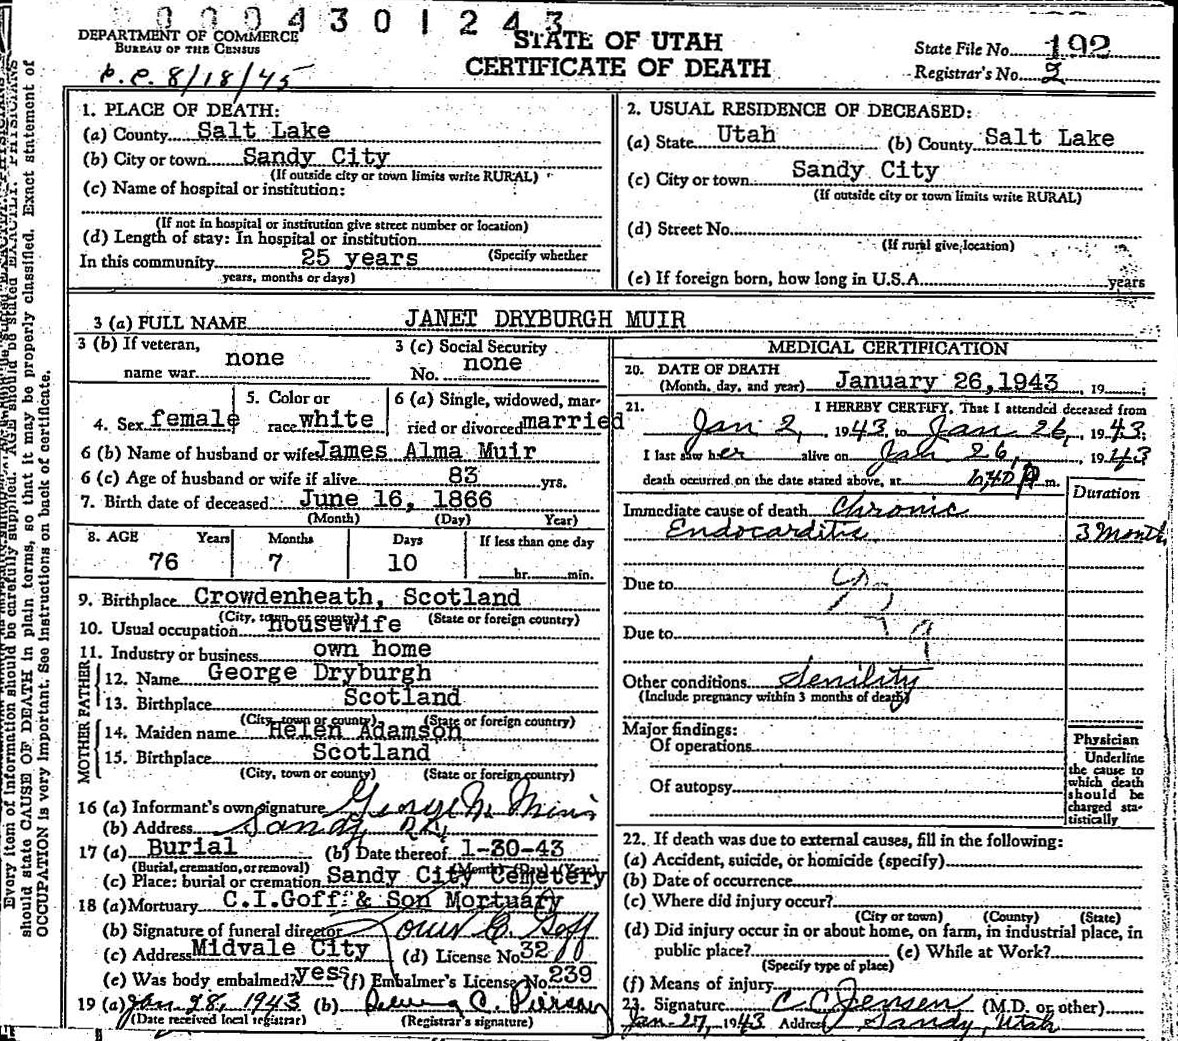 0004301243
DEPARTMENT OF COMMERCE
BUREAU OF THE CENSUS
STATE OF UTAH
CERTIFICATE OF DEATH
State File No. 192
Registrar's No. 2
8/18/45
1. PLACE OF DEATH:
(a) County Salt Lake
(b) City or town Sandy City
(If outside city or town limits write RURAL)
(c) Name of hospital or institution:
(If not in hospital or institution give street number or location)
(d) Length of stay: In hospital or institution
(Specify whether
In this community 25 years
years, months or days)
2. USUAL RESIDENCE OF DECEASED:
(a) State Utah (b) County Salt Lake
(c) City or town Sandy City
(If outside city or town limits write RURAL)
(d) Street No.
(If rural give location)
(e) If foreign born, how long in U.S.A. years
3 (a) FULL NAME JANET DRYBURGH MUIR
3 (b) If veteran, name war none
3 (c) Social Security No. none
4. Sex female
5. Color or race white
6 (a) Single, widowed, married or divorced married
6 (b) Name of husband or wife James Alma Muir
6 (c) Age of husband or wife if alive 83 yrs.
7. Birth date of deceased June 16, 1866
(Month) (Day) Year)
8. AGE Years Months Days If less than one day
76 7 10 hr. min.
9. Birthplace Crowdenheath, Scotland
(City, town or county) (State or foreign country)
10. Usual occupation housewife
11. Industry or business own home
FATHER
12. Name George Dryburgh
13. Birthplace Scotland
(City, town or county) (State or foreign country)
MOTHER
14. Maiden name Helen Adamson
15. Birthplace Scotland
(City, town or county) (State or foreign country)
16 (a) Informant's own signature George M. Muir
(b) Address Sandy
17 (a) Burial (b) Date thereof 1-30-43
(Burial, cremation, or removal) (Month) (Day) (Year)
(c) Place: burial or cremation Sandy City Cemetery
18 (a) Mortuary C.I.Goff & Son Mortuary
(b) Signature of funeral director Louis C. Goff
(c) Address Midvale City (d) License No. 32
(e) Was body embalmed? yess (f) Embalmer's License No. 239
19 (a) Jan. 28, 1943 (b)
(Date received local registrar) (Registrar's signature)
MEDICAL CERTIFICATION
20. DATE OF DEATH
(Month, day, and year) January 26,1943, 19
21. I HEREBY CERTIFY, That I attended deceased from
Jan 2, 1943, to Jan 26, 1943;
I last saw her alive on Jan 26, 1943
death occurred on the date stated above, at 6,40 P m.
Duration
Immediate cause of death Chronic
Endocarditis 3 Month
Due to
Due to
Other conditions Senility
(Include pregnancy within 3 months of death)
Major findings:
Of operations
Of autopsy
Physician
Underline the cause to which death should be charged statistically
22. If death was due to external causes, fill in the following:
(a) Accident, suicide, or homicide (specify)
(b) Date of occurrence
(c) Where did injury occur?
(City or town) (County) (State)
(d) Did injury occur in or about home, on farm, in industrial place, in
public place? (e) While at Work?
(Specify type of place)
(f) Means of injury
23. Signature C. C. Jensen (M.D. or other)
Jan-27, 1943 Address Sandy, Utah
Every item of information should be carefully supplied. AGE should be stated EXACTLY. PHYSICIANS
should state CAUSE OF DEATH in plain terms, so that it may be properly classified. Exact statement of
OCCUPATION is very important. See instructions on back of certificate.